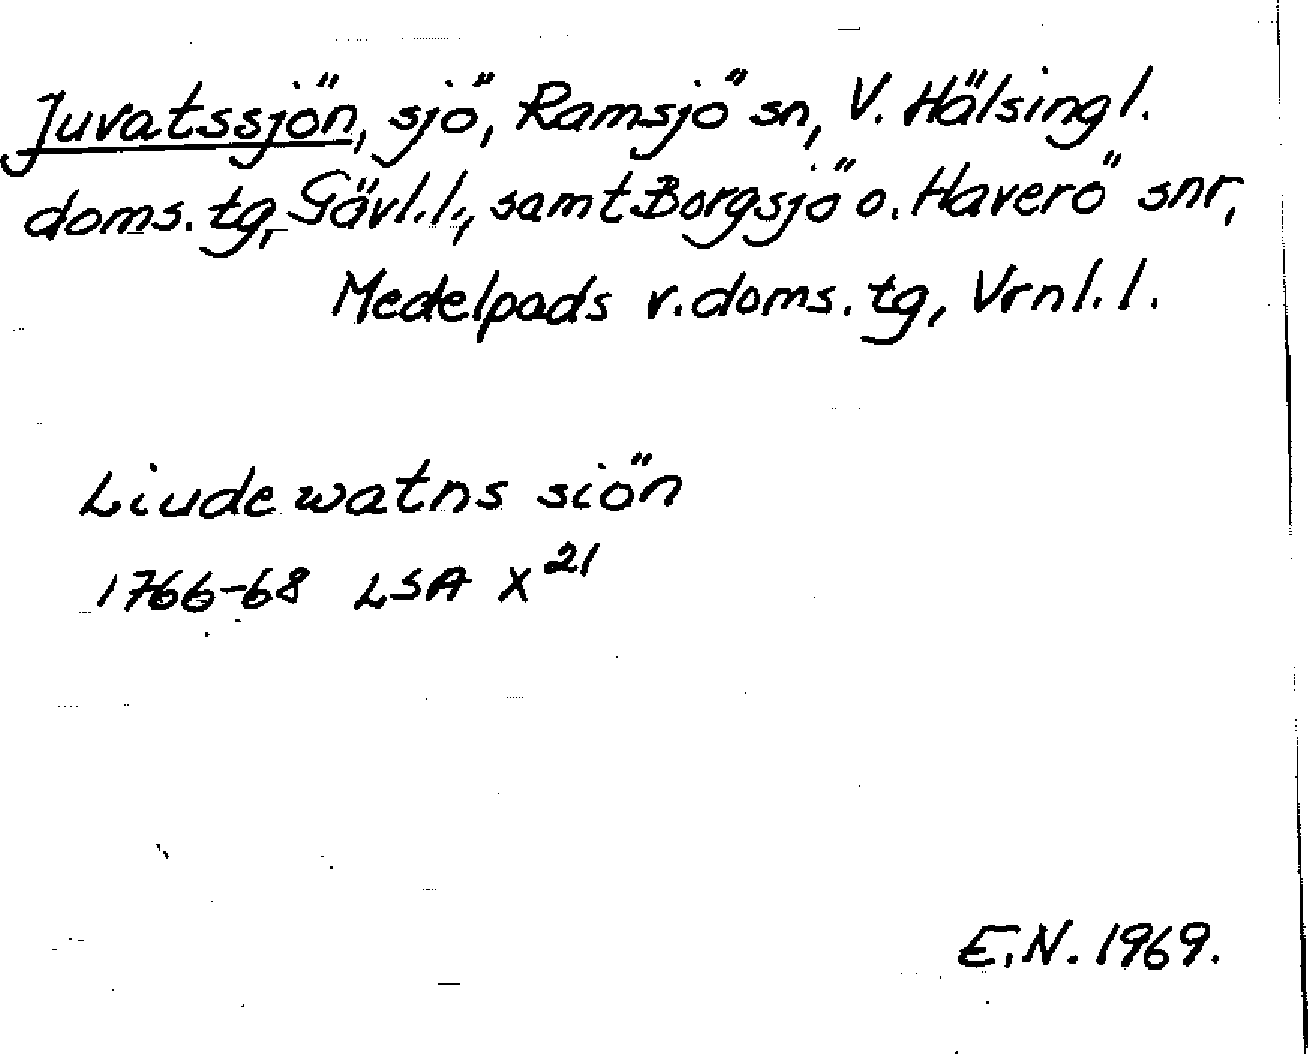 Juvatssjön, sjö, Ramsjö sn, V. Hälsingl.
doms. tg, Gävl.l., samt Borgsjö o. Haverö snr,
Medelpads v. doms. tg, Vrnl. l.
Liudewatns siön
1766-68 LSA X²¹
E.N. 1969.